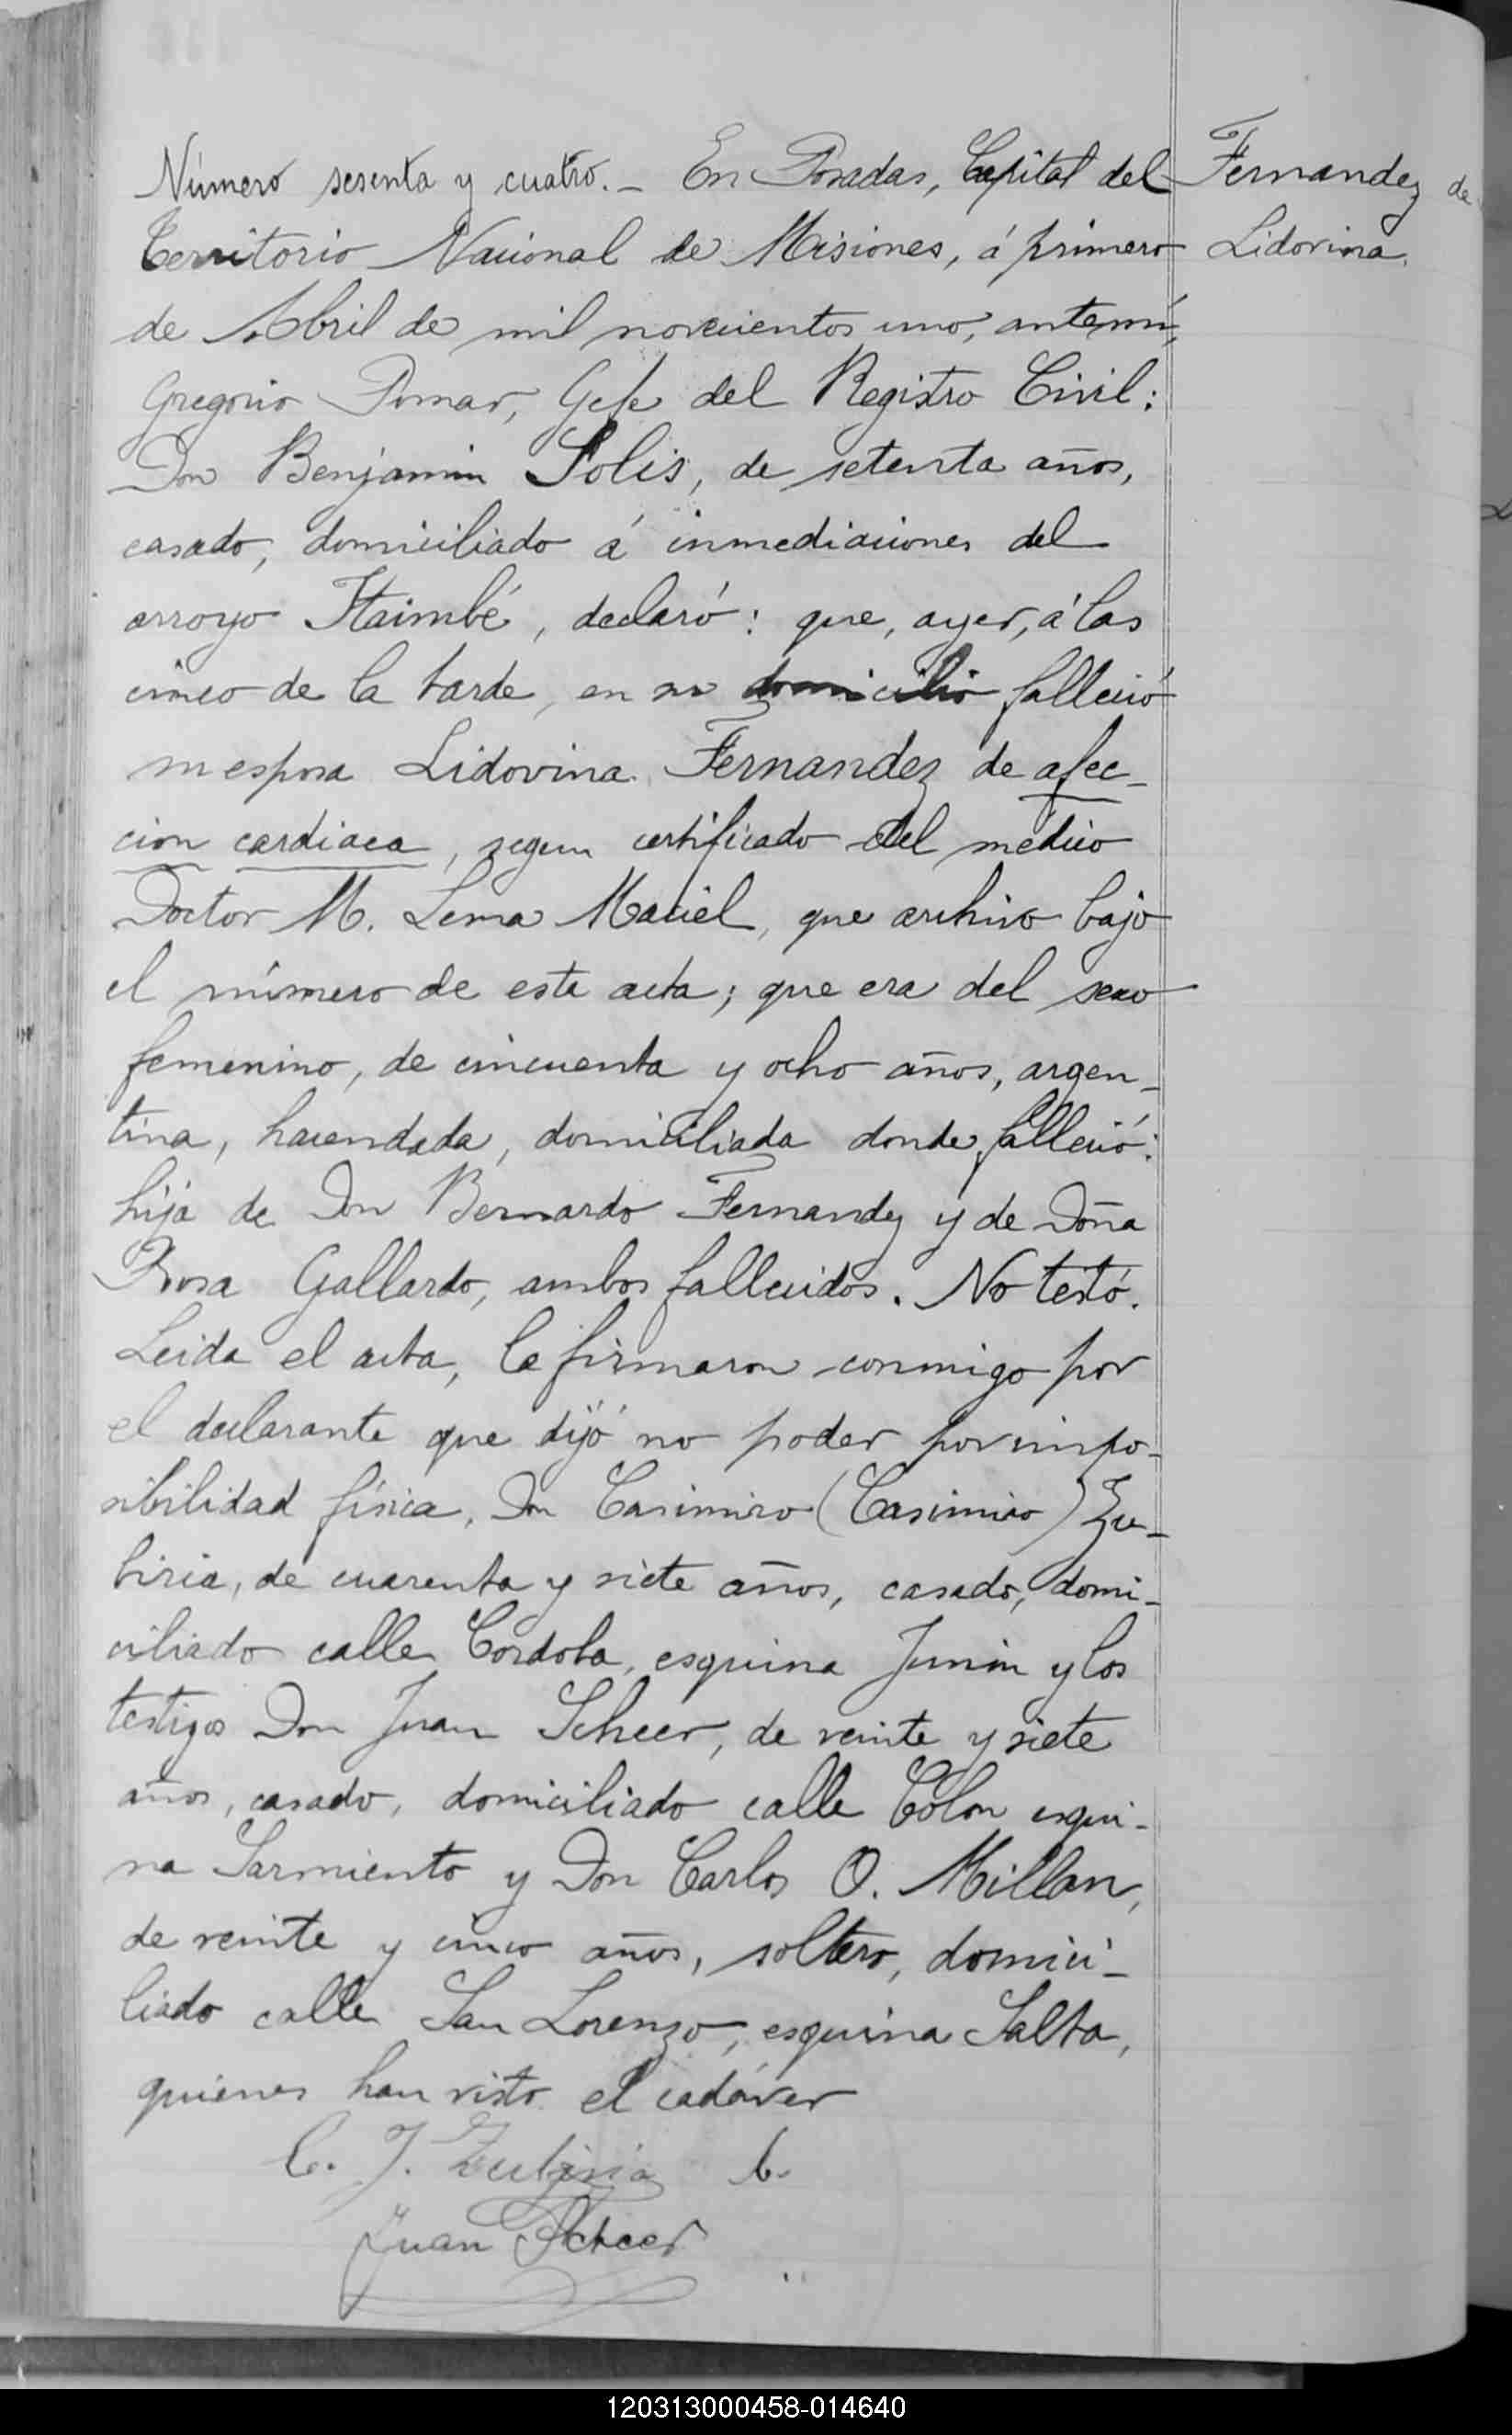 Número sesenta y cuatro.- En Posadas, Capital del
Territorio Nacional de Misiones, á primero
de Abril de mil novecientos uno, ante mí,
Gregorio Pomar, Gefe del Registro Civil:
Don Benjamin Solis, de setenta años,
casado, domiciliado á inmediaciones del
arroyo Itaimbé, declaró: que, ayer, á las
cinco de la tarde, en su domicilio falleció
su esposa Lidovina Fernandez de afec-
cion cardiaca, segun certificado del médico
Doctor M. Lema Maciel, que archivo bajo
el número de esta acta; que era del sexo
femenino, de cincuenta y ocho años, argen-
tina, hacendada, domiciliada donde falleció:
hija de Don Bernardo Fernandez y de Doña
Rosa Gallardo, ambos fallecidos. No testó.
Leida el acta, la firmaron conmigo por
el declarante que dijó no poder por impo-
sibilidad física, Don Casimiro (Casimiro) Zu-
biria, de cuarenta y siete años, casado, domi-
ciliado calle Cordoba, esquina Junin y los
testigos Don Juan Scheer, de veinte y siete
años, casado, domiciliado calle Colon esqui-
na Sarmiento y Don Carlos O. Millan,
de veinte y cinco años, soltero, domici-
liado calle San Lorenzo, esquina Salta,
quienes han visto el cadáver
C. J. Zubiria
Juan Scheer
Fernandez de
Lidovina.
120313000458-014640